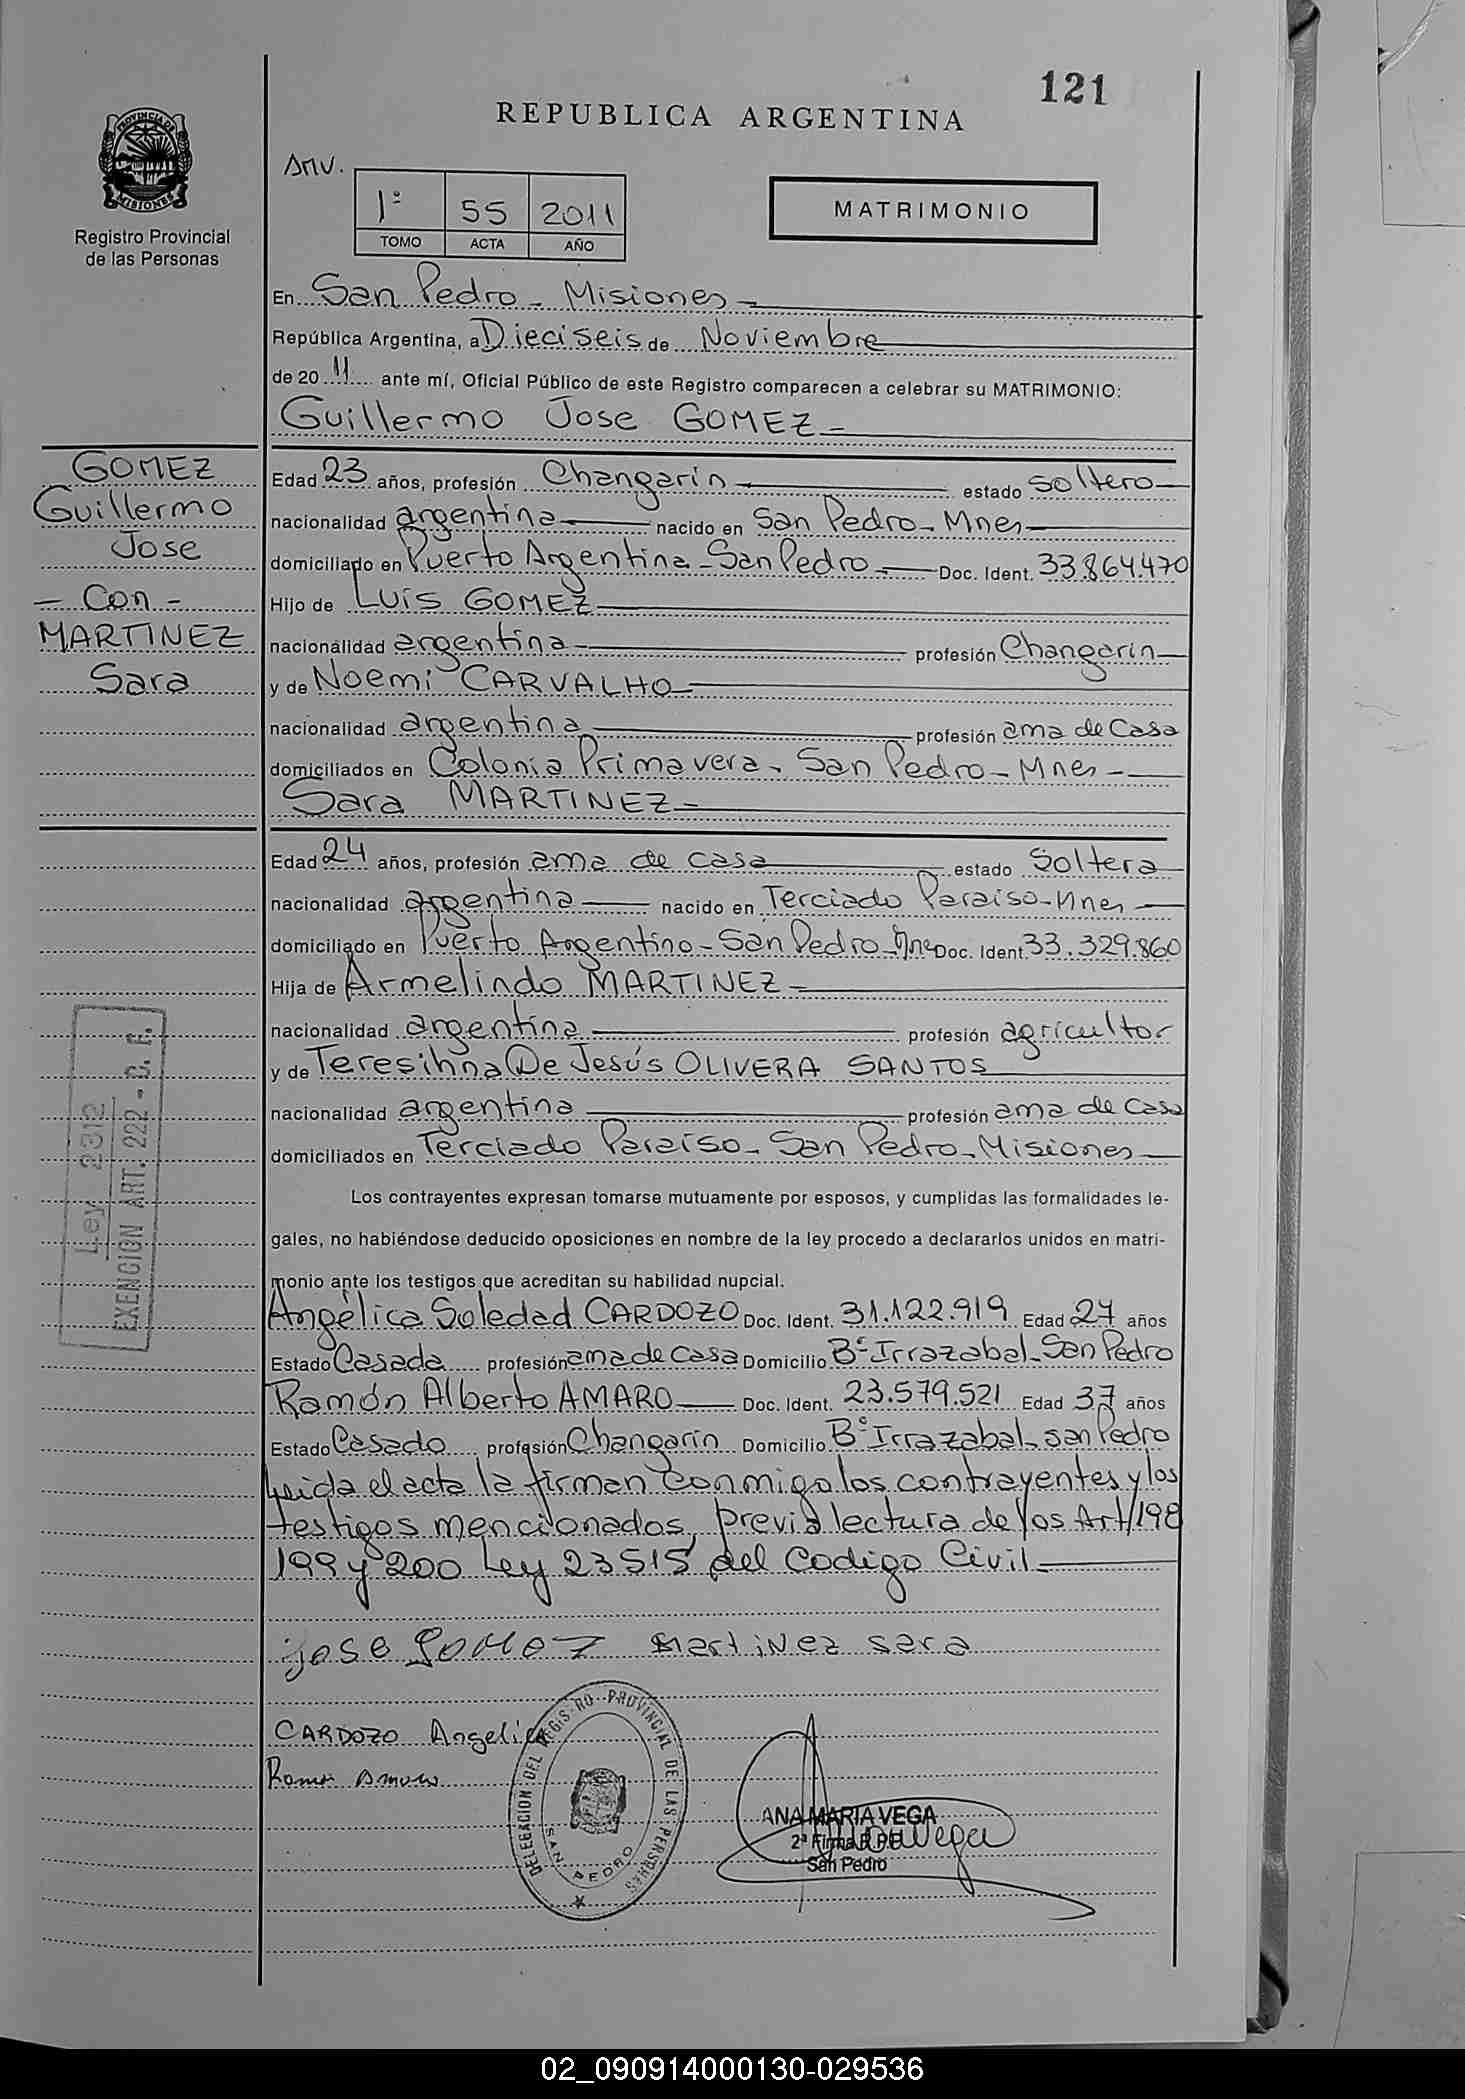 121
REPUBLICA ARGENTINA
PROVINCIA DE MISIONES
Registro Provincial
de las Personas
1º 55 2011
TOMO ACTA AÑO
MATRIMONIO
En San Pedro - Misiones -
República Argentina, a Dieciseis de Noviembre
de 20 11 ante mí, Oficial Público de este Registro comparecen a celebrar su MATRIMONIO:
Guillermo Jose GOMEZ -
GOMEZ
Guillermo
Jose
- Con -
MARTINEZ
Sara
Edad 23 años, profesión Changarin estado Soltero
nacionalidad argentina nacido en San Pedro - Mnes
domiciliado en Puerto Argentina - San Pedro - Doc. Ident. 33.864.470
Hijo de Luis GOMEZ
nacionalidad argentina profesión Changarin
y de Noemi CARVALHO
nacionalidad argentina profesión ama de Casa
domiciliados en Colonia Primavera - San Pedro - Mnes -
Sara MARTINEZ -
Edad 24 años, profesión ama de casa estado Soltera
nacionalidad argentina nacido en Terciado Paraiso - Mnes
domiciliado en Puerto Argentino - San Pedro - Mnes Doc. Ident. 33.329.860
Hija de Armelindo MARTINEZ -
nacionalidad argentina profesión agricultor
y de Teresihna De Jesús OLIVERA SANTOS
nacionalidad argentina profesión ama de Casa
domiciliados en Terciado Paraiso - San Pedro - Misiones
Los contrayentes expresan tomarse mutuamente por esposos, y cumplidas las formalidades le-
gales, no habiéndose deducido oposiciones en nombre de la ley procedo a declararlos unidos en matri-
monio ante los testigos que acreditan su habilidad nupcial.
Angélica Soledad CARDOZO Doc. Ident. 31.122.919 Edad 27 años
Estado Casada profesión ama de casa Domicilio Bº Irrazabal - San Pedro
Ramón Alberto AMARO Doc. Ident. 23.579.521 Edad 37 años
Estado Casado profesión Changarin Domicilio Bº Irrazabal - San Pedro
Leida el acta la firman conmigo los contrayentes y los
testigos mencionados, previa lectura de los Art/198
199 y 200 Ley 23515 del Codigo Civil
Ley 2312
EXENCION ART. 222 - C. F.
jose gomez martinez sara
CARDOZO Angelica
Ramon Amaro
DELEGACION DEL REGISTRO PROVINCIAL DE LAS PERSONAS
SAN PEDRO
ANA MARIA VEGA
2ª Firma R.P.P.
San Pedro
02_090914000130-029536